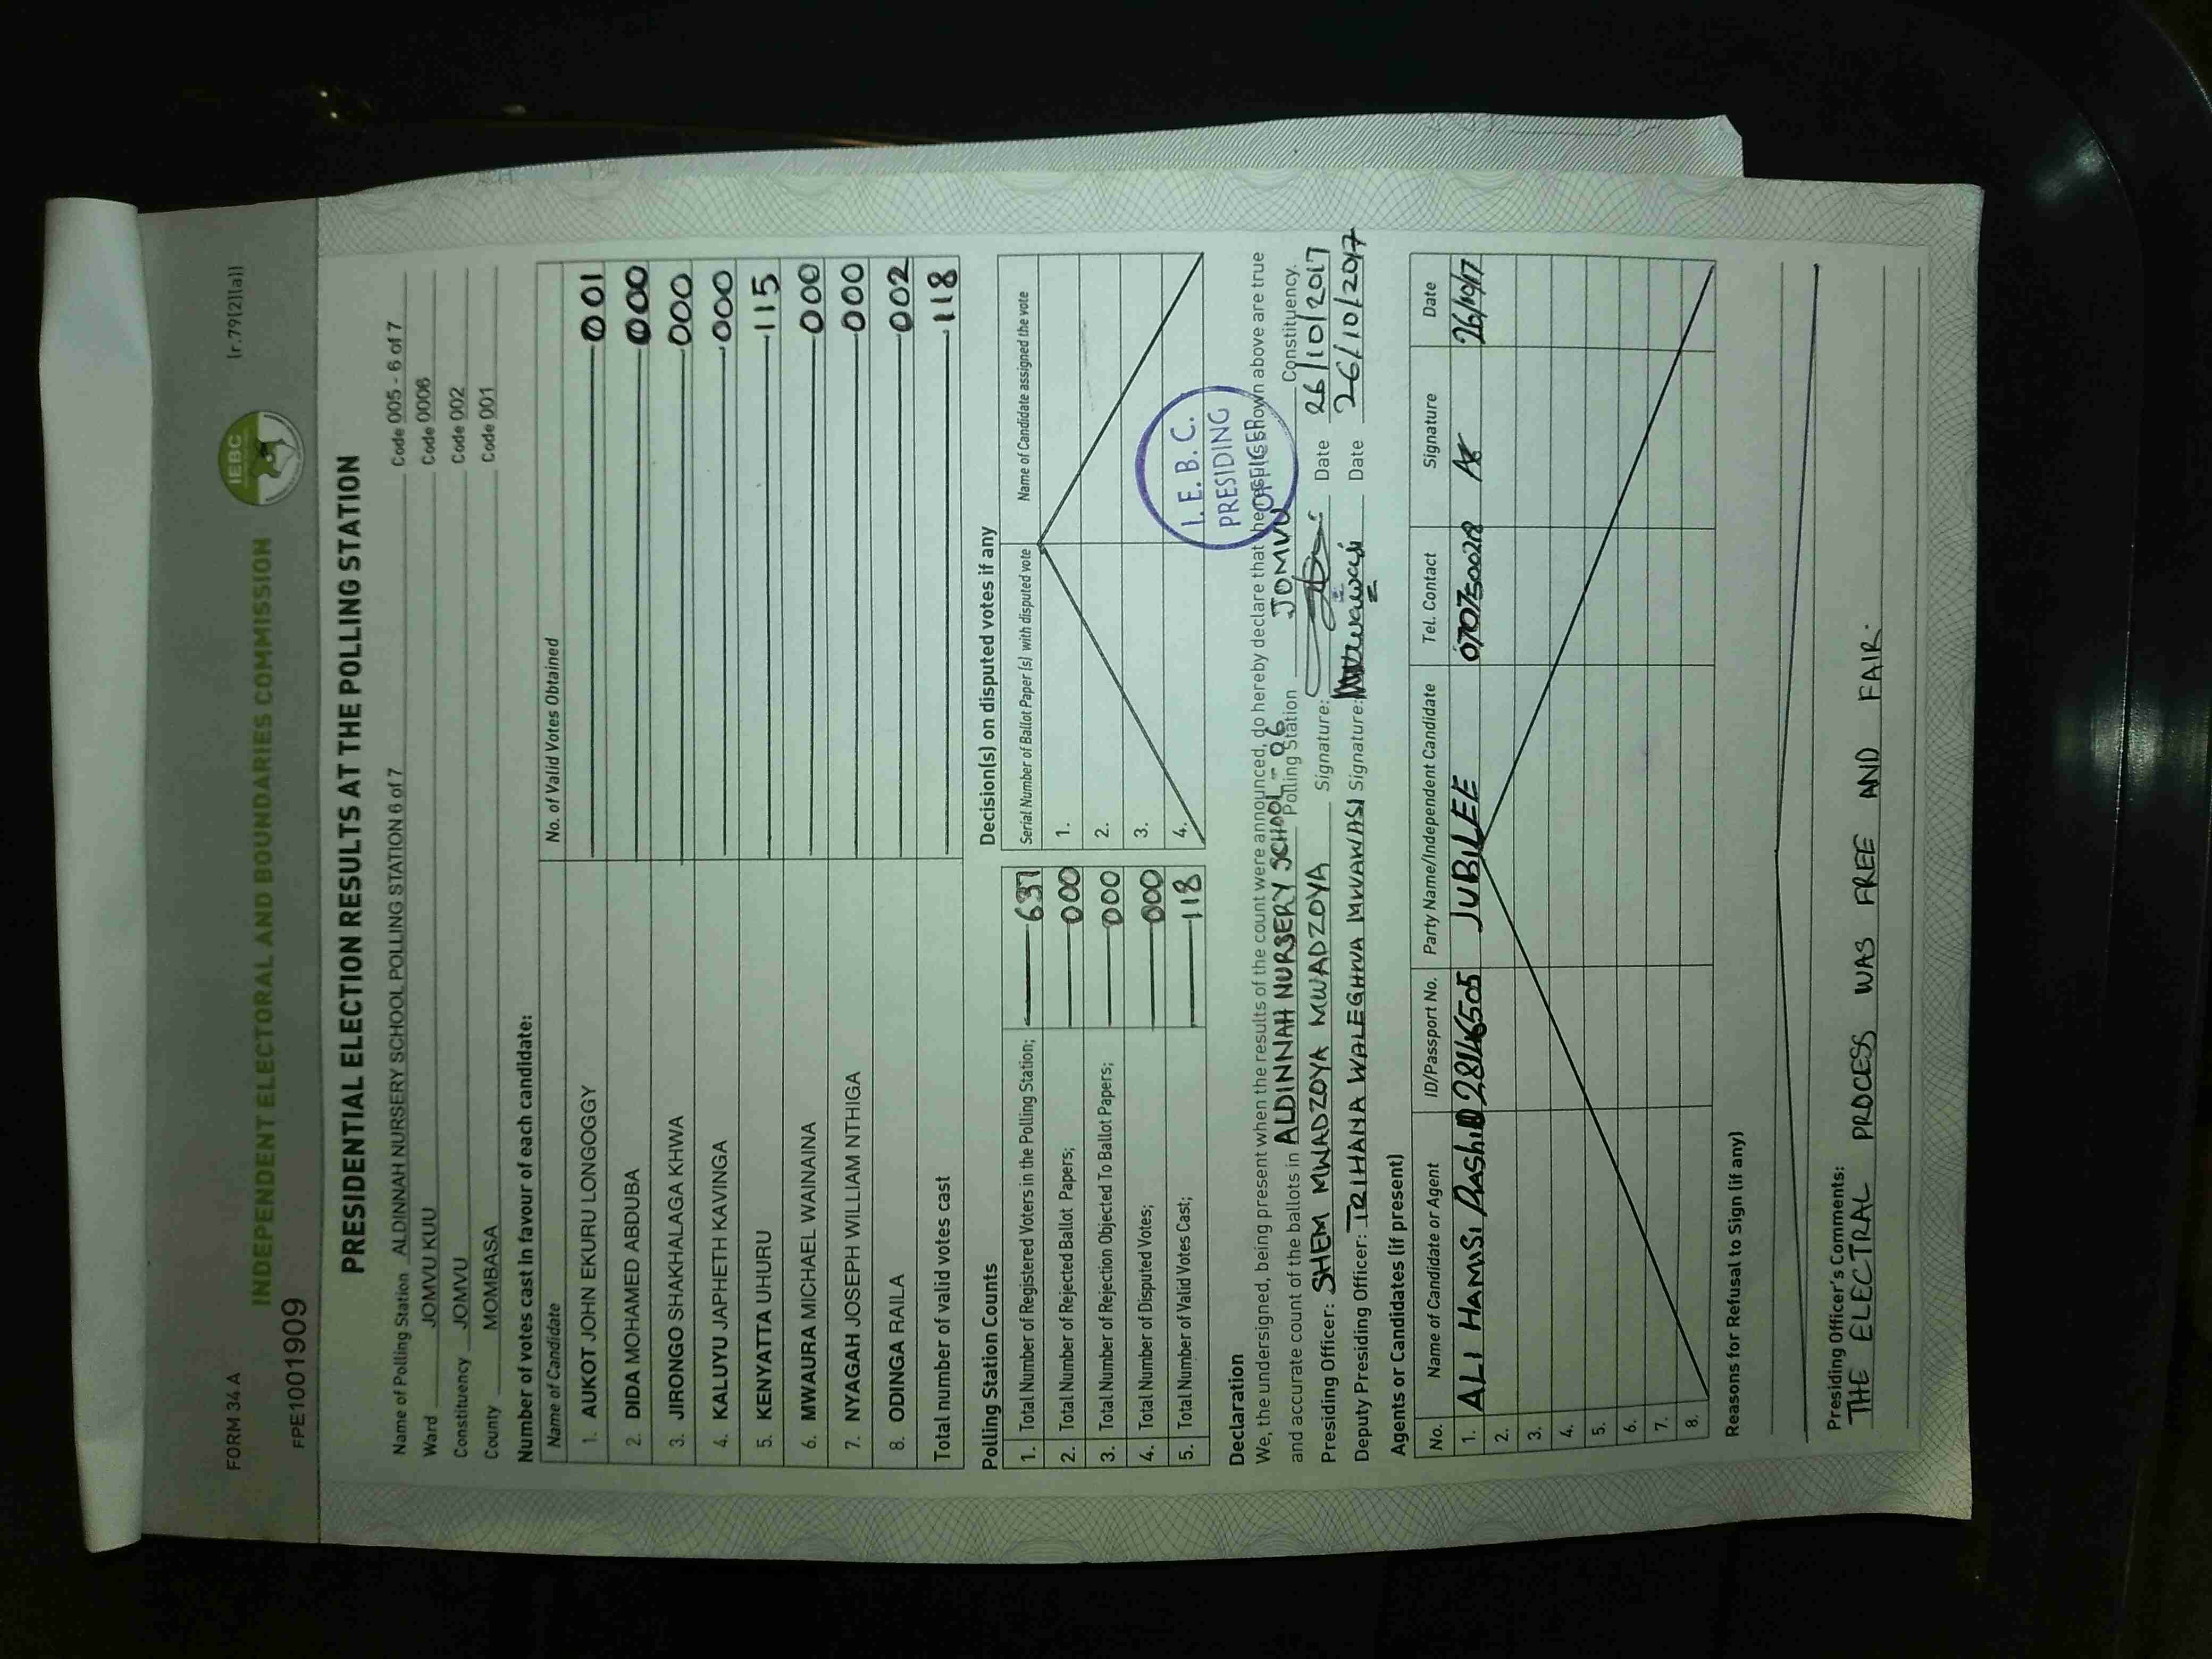 FORM 34 A
(r.79(2)(a))
INDEPENDENT ELECTORAL AND BOUNDARIES COMMISSION
IEBC
FPE1001909
PRESIDENTIAL ELECTION RESULTS AT THE POLLING STATION
Name of Polling Station ALDINNAH NURSERY SCHOOL POLLING STATION 6 of 7 Code 005 - 6 of 7
Ward JOMVU KUU Code 0006
Constituency JOMVU Code 002
County MOMBASA Code 001
Number of votes cast in favour of each candidate:
Name of Candidate No. of Valid Votes Obtained
1. AUKOT JOHN EKURU LONGOGGY 001
2. DIDA MOHAMED ABDUBA 000
3. JIRONGO SHAKHALAGA KHWA 000
4. KALUYU JAPHETH KAVINGA 000
5. KENYATTA UHURU 115
6. MWAURA MICHAEL WAINAINA 000
7. NYAGAH JOSEPH WILLIAM NTHIGA 000
8. ODINGA RAILA 002
Total number of valid votes cast 118
Polling Station Counts
1. Total Number of Registered Voters in the Polling Station; 637
2. Total Number of Rejected Ballot Papers; 000
3. Total Number of Rejection Objected To Ballot Papers; 000
4. Total Number of Disputed Votes; 000
5. Total Number of Valid Votes Cast; 118
Decision(s) on disputed votes if any
Serial Number of Ballot Paper (s) with disputed vote Name of Candidate assigned the vote
1.
2.
3.
4.
I.E.B.C.
PRESIDING
OFFICER
Declaration
We, the undersigned, being present when the results of the count were announced, do hereby declare that the results shown above are true
and accurate count of the ballots in ALDINNAH NURSERY SCHOOL - 06 Polling Station JOMVU Constituency.
Presiding Officer: SHEM MWADZOYA MWADZOYA Signature: Date 26/10/2017
Deputy Presiding Officer: WALEGHWA MWAWASI Signature: Mwawasi Date 26/10/2017
Agents or Candidates (if present)
No. Name of Candidate or Agent ID/Passport No. Party Name/Independent Candidate Tel. Contact Signature Date
1. ALI HAMISI RASHID JUBILEE 26/10/17
2.
3.
4.
5.
6.
7.
8.
Reasons for Refusal to Sign (if any)
Presiding Officer's Comments:
THE ELECTRAL PROCESS WAS FREE AND FAIR.